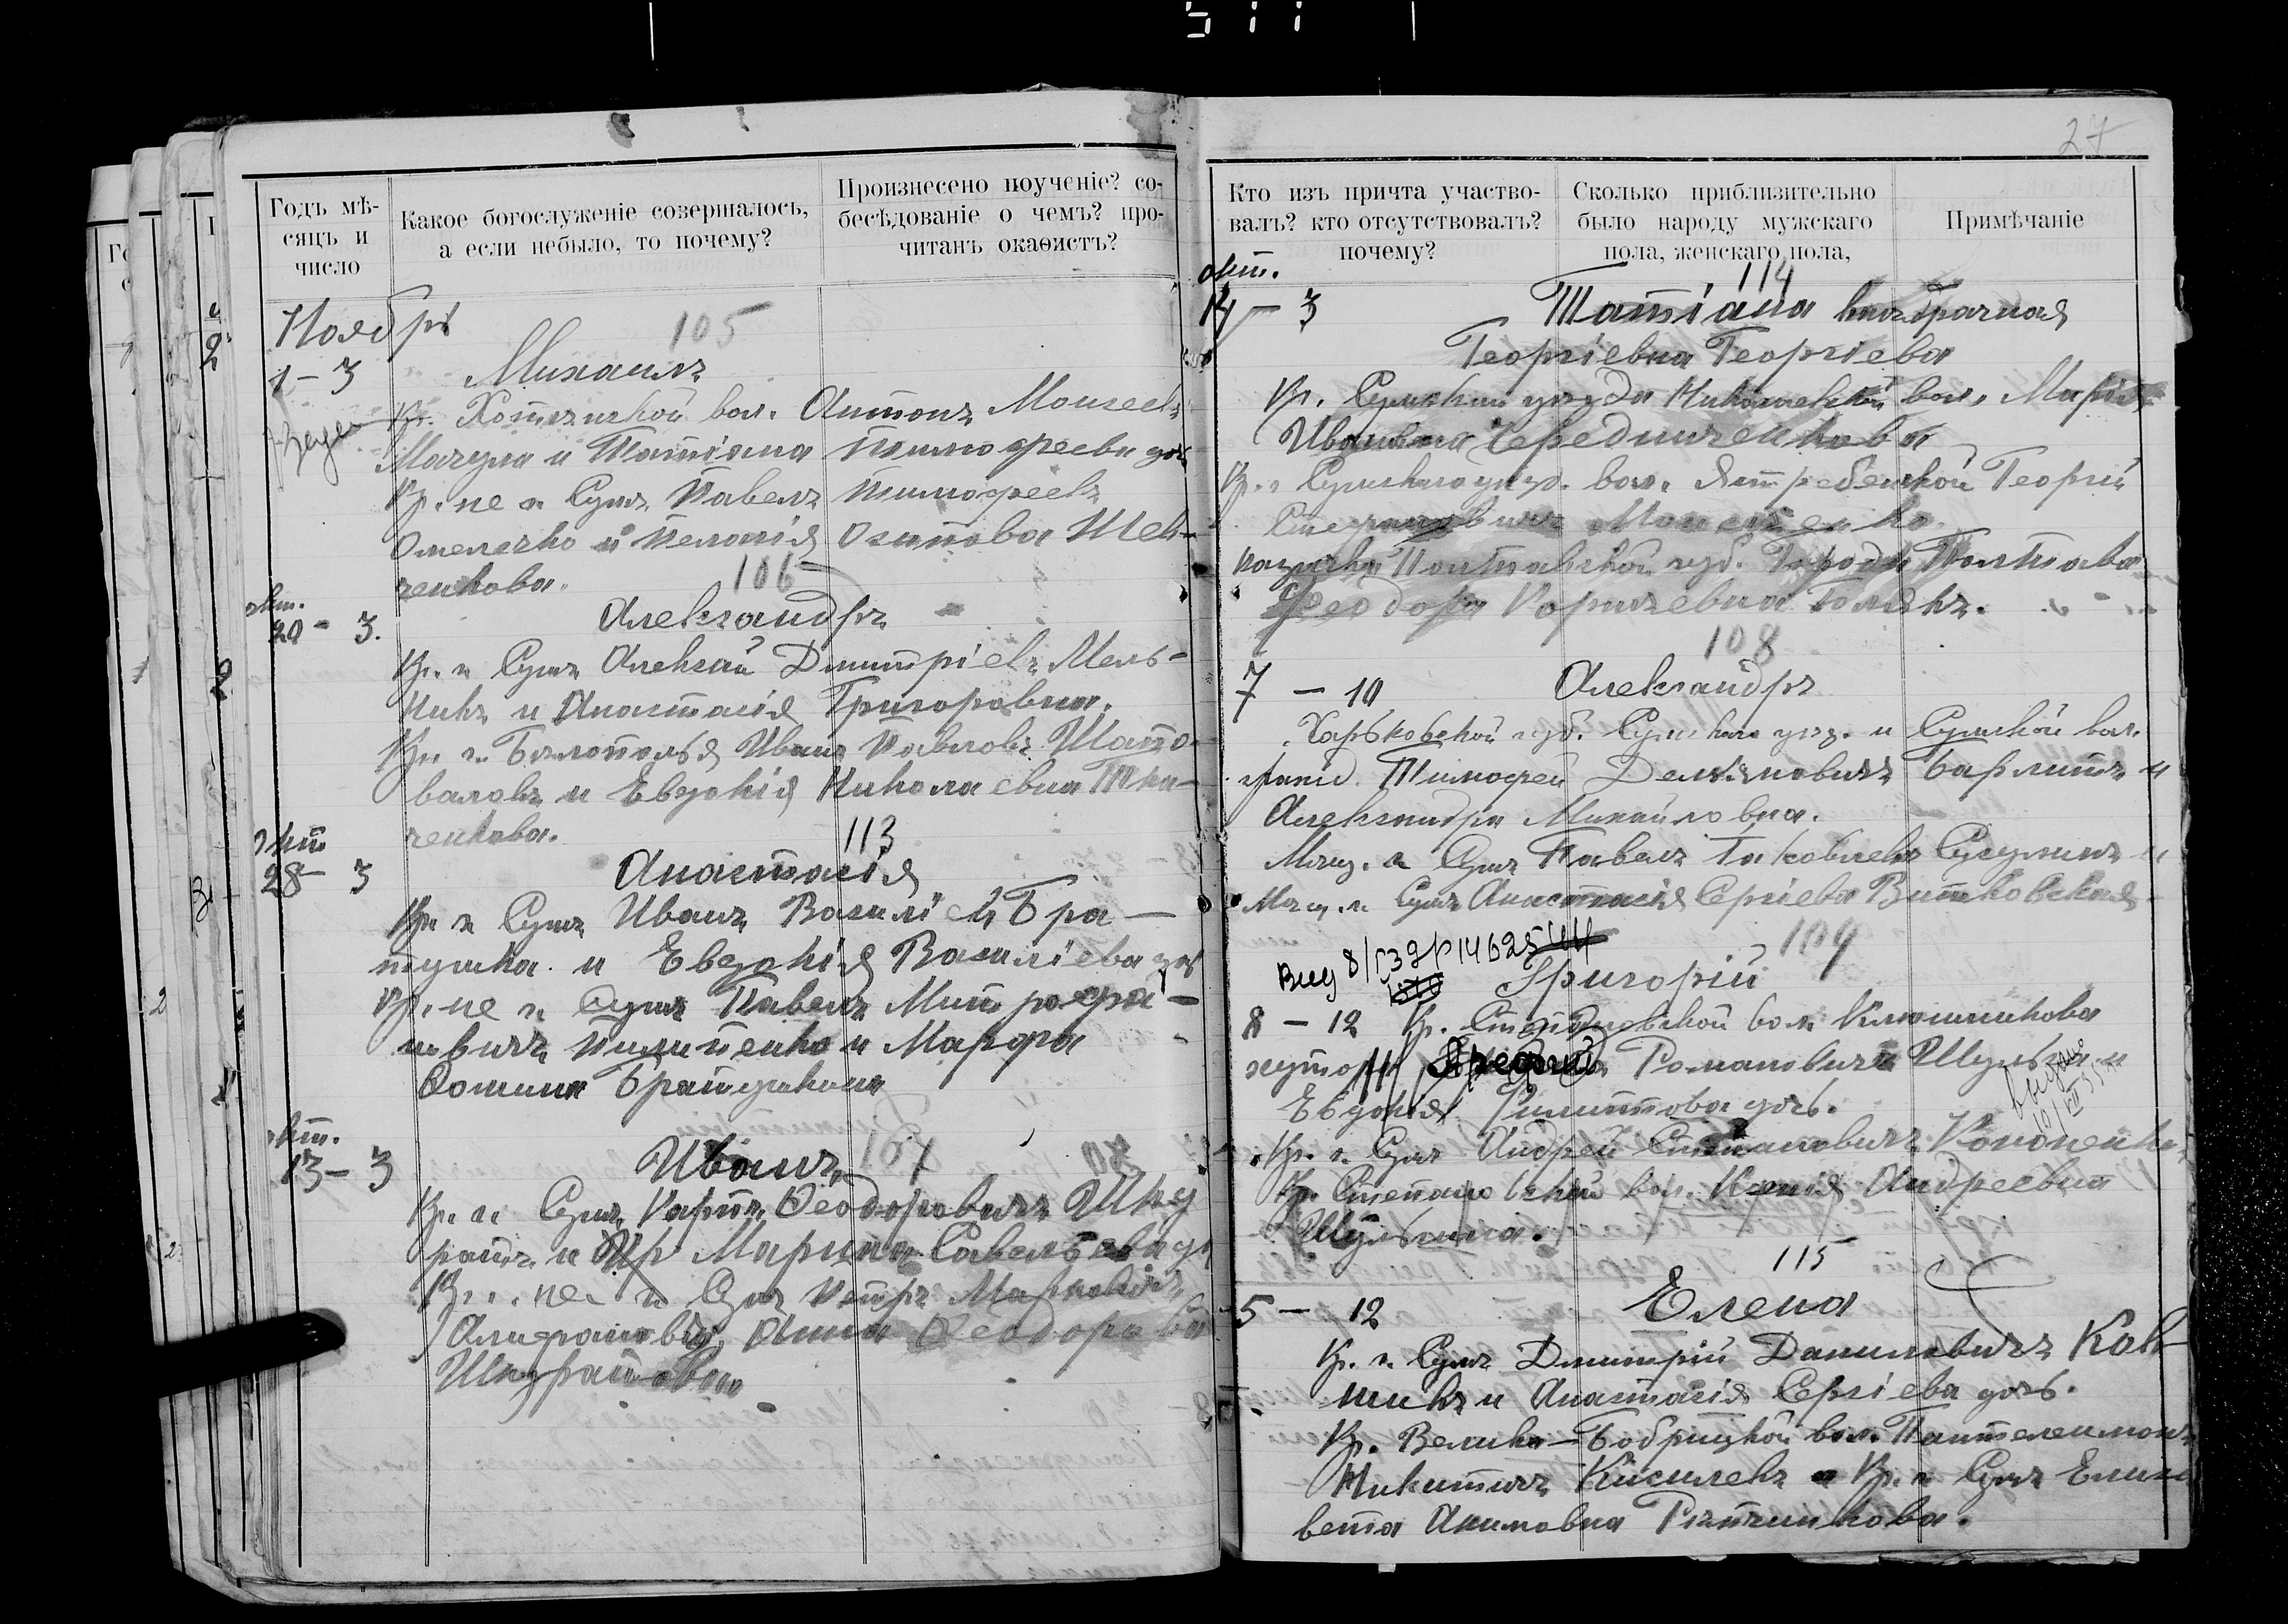 Годъ мѣ-
сяцъ и
число
Какое богослуженіе совершалось,
а если небыло, то почему?
Произнесено поученіе? со-
бесѣдованіе о чемъ? про-
читанъ окаѳистъ?
Ноябрь
105
1 – 3 Михаилъ
Кр. Хотѣнской вол. Антонъ Моисеевъ
и Татіана Тимофеева доч
Кр. не г. Сумъ Павелъ Тимофеевъ
Омелечко и Пелагія Осипова Шев-
ченкова.
106
окт.
20 – 3. Александръ
Кр. г. Сумъ Алексѣй Дмитріевъ Мель-
никъ и Анастасія Григоровна.
Кр. г. Бѣлополья Иванъ Павловъ Шапо-
валовъ и Евдокія Николаевна Тка-
ченкова.
113
окт
28 – 3 Анастасія
Кр. г. Сумъ Иванъ Василіевъ Бра-
тушка и Евдокія Василіева доч
Кр. не г. Сумъ Павелъ Митрофа-
новичъ Пилипенко и Марфа
Братушкина
107
окт.
13 – 3 Иванъ
Кр. г. Сумъ Карпъ Ѳеодоровичъ Шку
ратъ и Марина Савельева д
Кр. не г. Сумъ Петръ Марковичъ
Анна Ѳеодорова
Шкуратова
27
Кто изъ причта участво-
валъ? кто отсутствовалъ?
почему?
Сколько приблизительно
было народу мужскаго
пола, женскаго пола,
Примѣчаніе
окт.
114
14 – 3 Татіана внѣбрачная
Георгіевна Георгіева
Кр. Сумскаго уѣзда Николаевской вол. Марія
Ивановна Чередниченкова
Кр. Сумскаго уѣзд. вол. Ястребенской Георгій
Стефановичъ Моисеенко
казачка Полтавской губ. Города Полтава
Ѳеодора
108
7 – 10 Александръ
Харьковской губ. Сумскаго уѣз. и Сумской вол.
Тимофей Демяновичъ и
Александра Михайловна.
Мѣщ. г. Сумъ Павелъ Іаковлевъ и
Мѣщ. г. Сумъ Анастасія Сергіева Витковская
109
Григорій
8 – 12 Кр. Степановской вол. Клюшникова
хутора Романовичъ Шульга и
Евдокія Филиппова доч.
Кр. г. Сумъ Андрей Степановичъ Кононенко
Кр. Степановской вол. Ксенія Андреевна
Шульгина.
115
5 – 12 Елена
Кр. г. Сумъ Дмитрій Даниловичъ Ков-
шикъ и Анастасія Сергіева доч.
Кр. Велико-Бобрицкой вол. Пантелеимонъ
Никитичъ Киселевъ и Кр. г. Сумъ Елиза
вета Акимовна